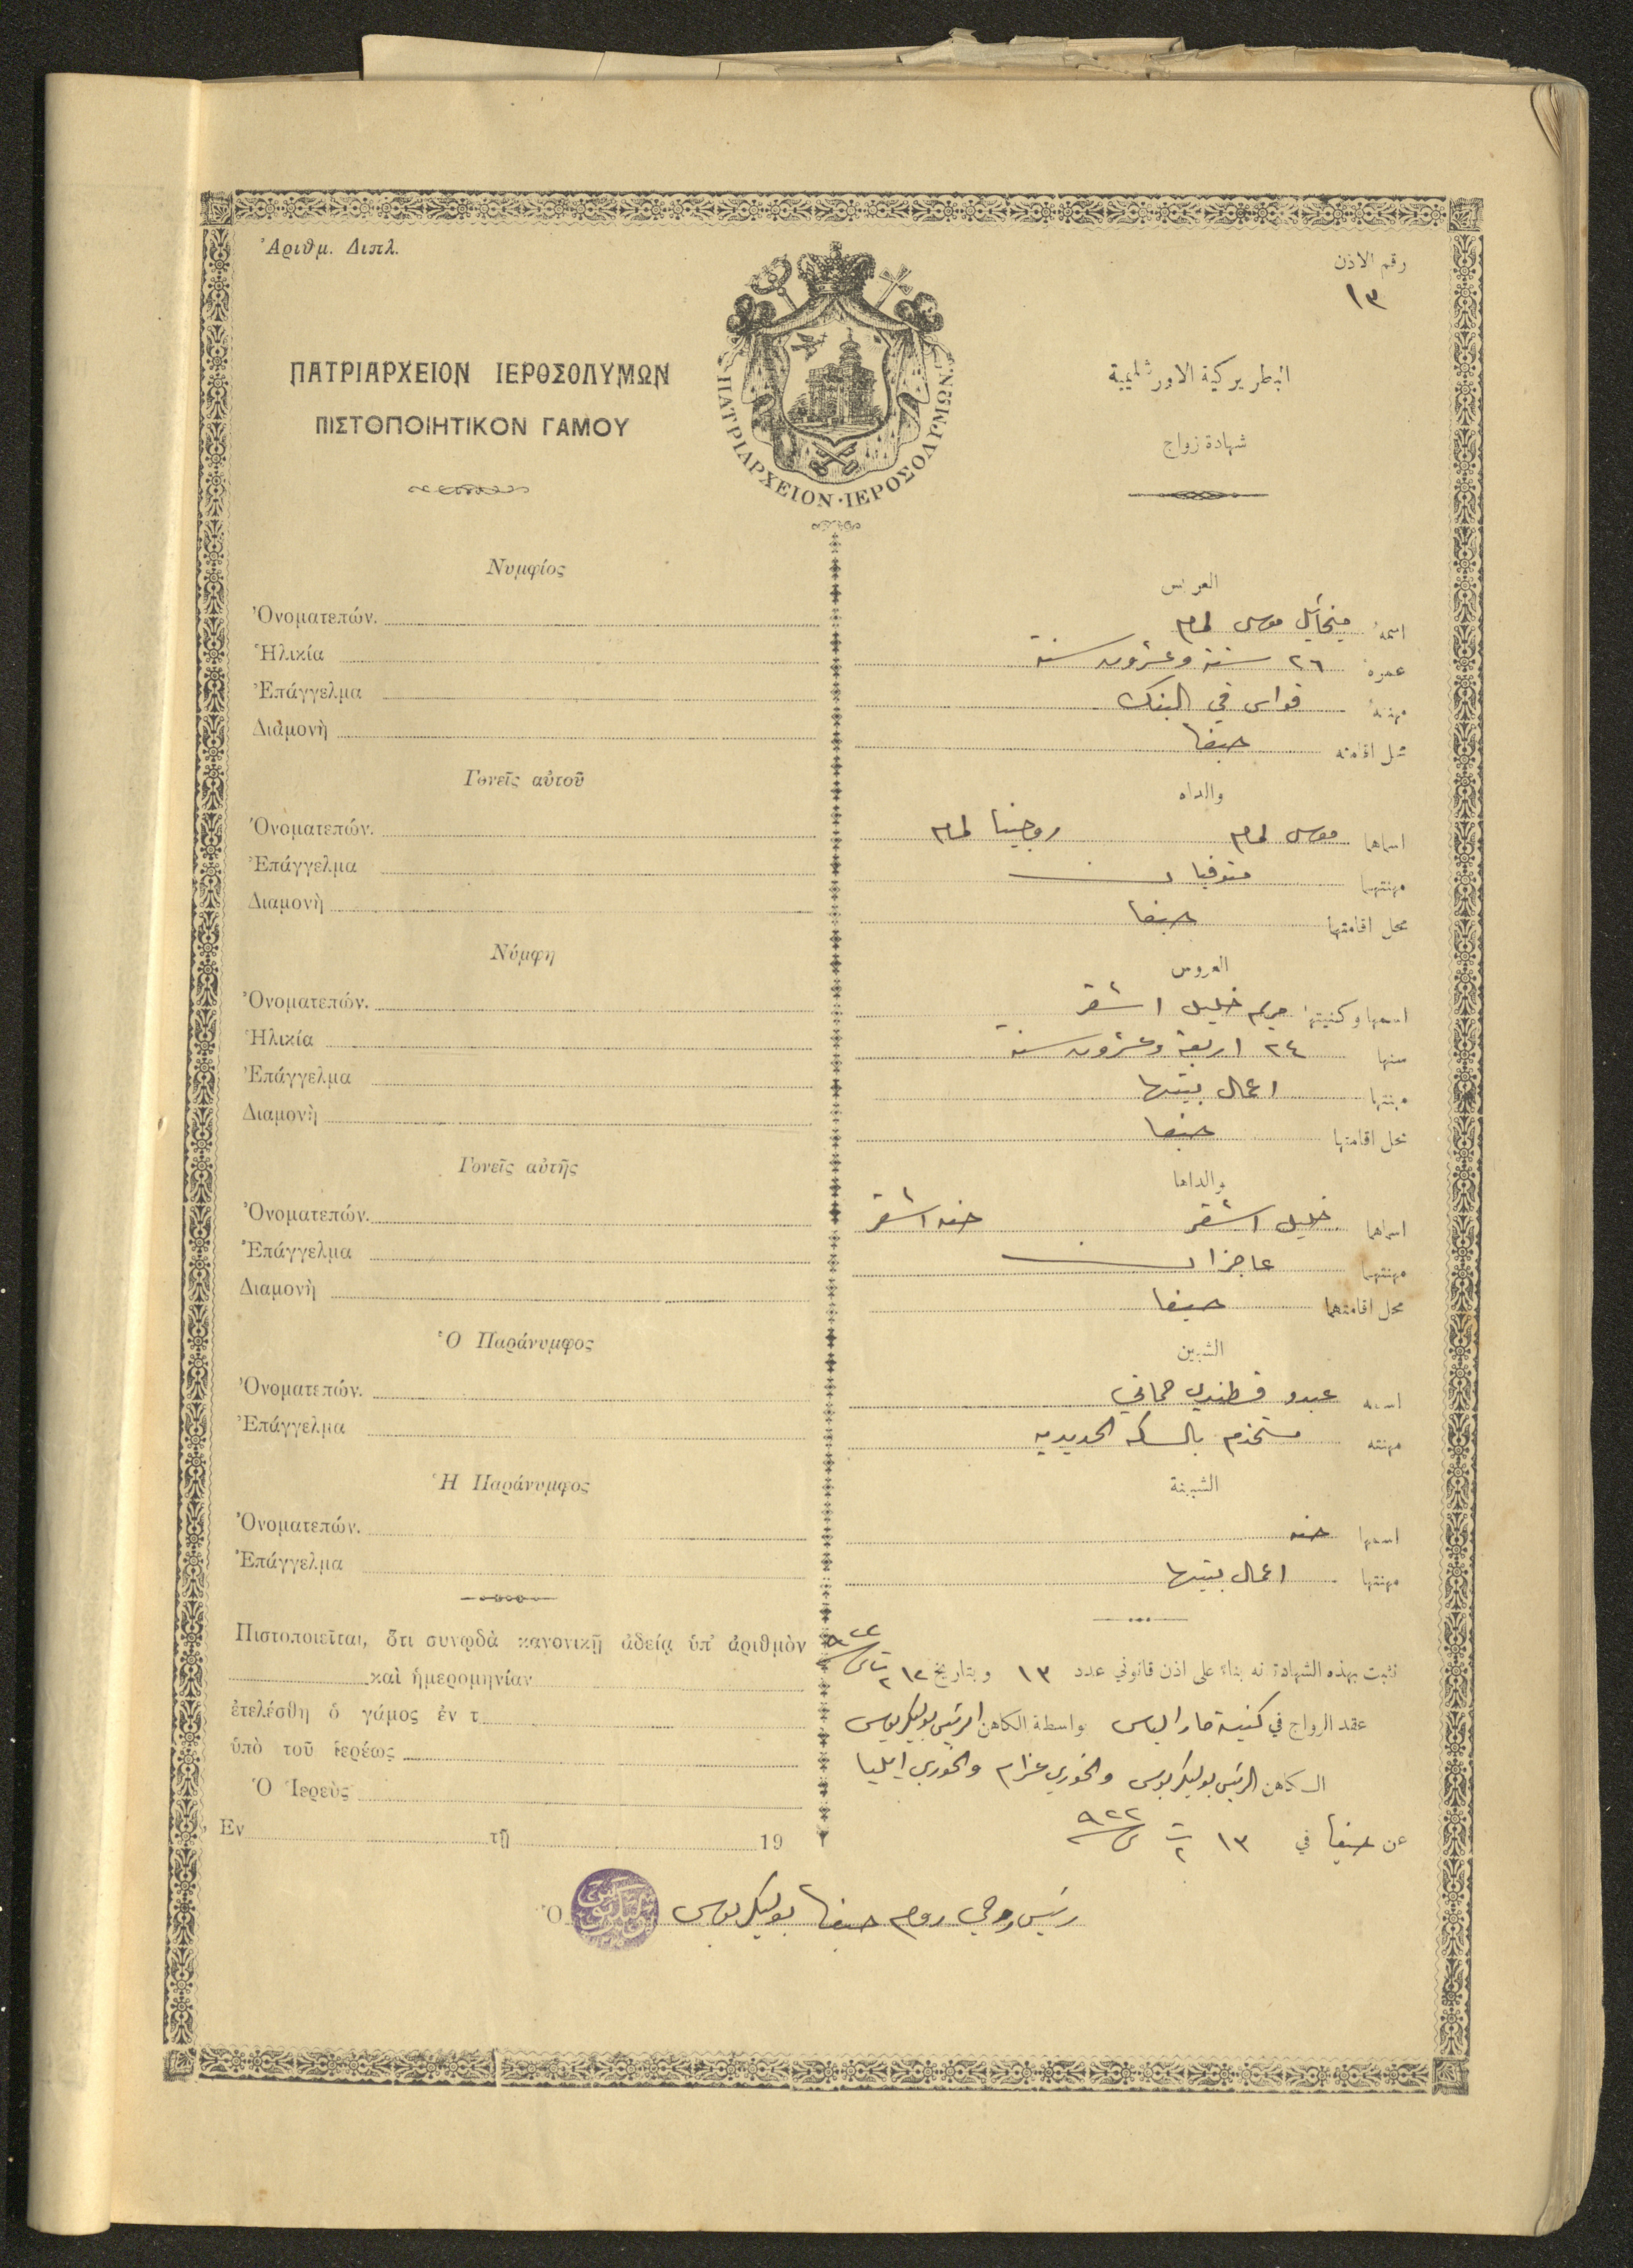 Ἀριθμ. Διπλ.
رقم الاذن
١٣
ΠΑΤΡΙΑΡΧΕΙΟΝ ΙΕΡΟΣΟΛΥΜΩΝ
ΠΙΣΤΟΠΟΙΗΤΙΚΟΝ ΓΑΜΟΥ
ΠΑΤΡΙΑΡΧΕΙΟΝ·ΙΕΡΟΣΟΛΥΜΩΝ
البطريركية الاورشليمية
شهادة زواج
Νυμφίος
Ὀνοματεπών.
Ἡλικία
Ἐπάγγελμα
Διαμονὴ
Γονεῖς αὐτοῦ
Ὀνοματεπών.
Ἐπάγγελμα
Διαμονὴ
Νύμφη
Ὀνοματεπών.
Ἡλικία
Ἐπάγγελμα
Διαμονὴ
Γονεῖς αὐτῆς
Ὀνοματεπών.
Ἐπάγγελμα
Διαμονὴ
Ὁ Παράνυμφος
Ὀνοματεπών.
Ἐπάγγελμα
Ἡ Παράνυμφος
Ὀνοματεπών.
Ἐπάγγελμα
Πιστοποιεῖται, ὅτι συνῳδὰ κανονικῇ ἀδείᾳ ὑπ' ἀριθμὸν
καὶ ἡμερομηνίαν
ἐτελέσθη ὁ γάμος ἐν τ
ὑπὸ τοῦ ἱερέως
Ὁ Ἱερεὺς
Ἐν τῇ 19
العريس
اسمه ميخائيل موسى لحام
عمره ٢٦ ستة وعشرون سنة
مهنته قواس في البنك
محل اقامته حيفا
والداه
اسماهما موسى لحام روجينا لحام
مهنتهما متوفيان
محل اقامتهما حيفا
العروس
اسمها وكنيتها مريم خليل اشقر
سنها ٢٤ اربعة وعشرون سنة
مهنتها اعمال بيتها
محل اقامتها حيفا
والداها
اسماهما خليل اشقر حنه اشقر
مهنتهما عاجزان
محل اقامتهما حيفا
الشبين
اسمه عبدو قسطندي
مهنته مستخدم بالسكه الحديديه
الشبينة
اسمها حنه
مهنتها اعمال بيتها
تثبت بهذه الشهادة انه بناء على اذن قانوني عدد ١٣ وبتاريخ ١٢ ت٢ ٩٢٢
عقد الزواج في كنيسة مار الياس بواسطة الكاهن الرئيس بوليكربوس
الكاهن الرئيس بوليكربوس والخوري عزام والخوري ايليا
عن حيفا في ١٣ ت٢ ٩٢٢
رئيس روحي روم حيفا بوليكربوس
Ὁ